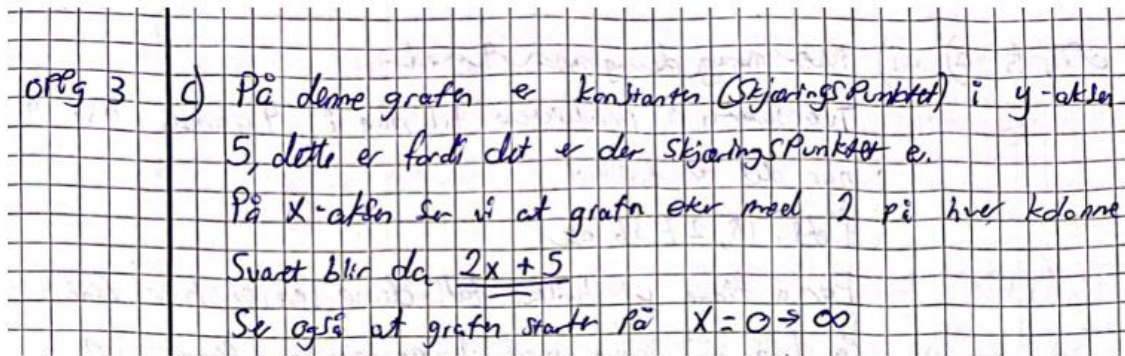 oppg 3 c) På denne grafen er konstanten (SkjæringsPunktet) i y-aksen
5, dette er fordi det er der SkjæringsPunktet e.
På X-aksen ser vi at grafen øker med 2 på hver kolonne
Svaret blir da 2x + 5
Se også at grafen starter på X = 0 → ∞